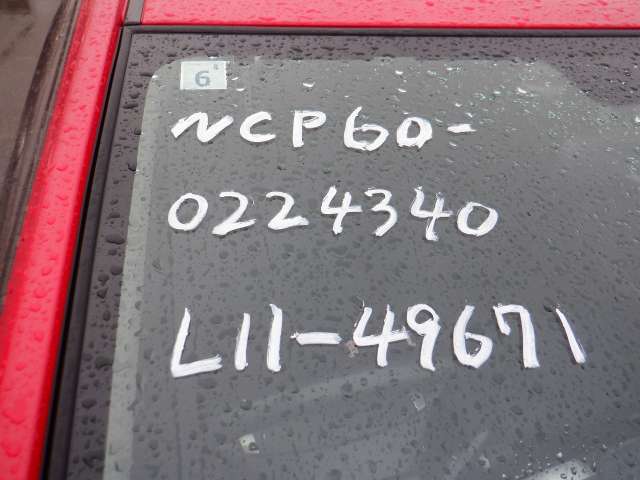 6
NCP60-
0224340
L11-49671